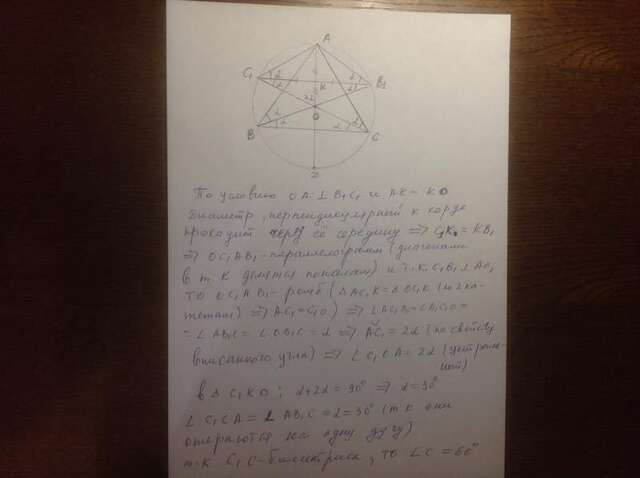 A
C₁ 2 2 B₁
2 K 2
2α
O
B 2 2 2 2 C
D
По условию OA ⊥ B₁C₁ и AK = KO
Диаметр, перпендикулярный к хорде
проходит через её середину => C₁K = KB₁
=> OC₁AB₁ - параллелограмм (диагонали
в т. K делятся пополам) и т.к. C₁B₁ ⊥ AO,
то OC₁AB₁ - ромб (△AC₁K = △OC₁K (по 2 ка-
тетам) => AC₁ = C₁O) => ∠AC₁B₁ = ∠B₁C₁O =
= ∠AB₁C₁ = ∠OB₁C₁ = α => AC₁ = 2α (по свойству
вписанного угла) => ∠C₁OA = 2α (централь-
ный)
В △ C₁KO: α+2α = 90° => α = 30°
∠C₁CA = ∠AB₁C₁ = α = 30° (т к они
опираются на одну дугу)
т.к C₁C - биссектриса, то ∠C = 60°